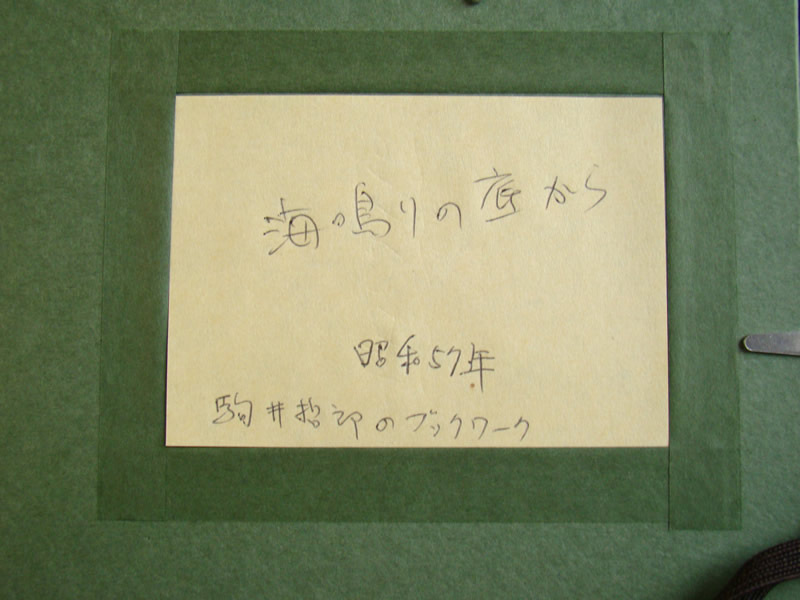 海鳴りの底から
昭和57年
駒井哲郎のブックワーク